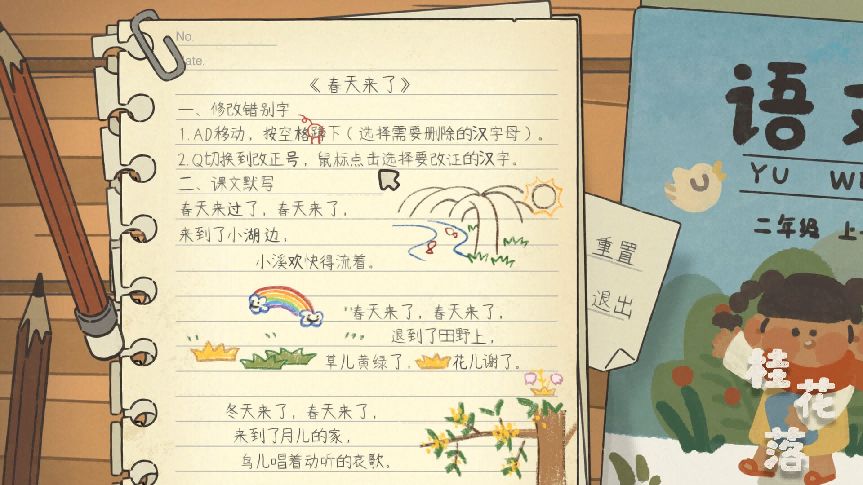 No.
Date.
《春天来了》
一、修改错别字
1.AD移动，按空格蹲下（选择需要删除的汉字母）。
2.Q切换到改正号，鼠标点击选择要改正的汉字。
二、课文默写
春天来过了，春天来了，
来到了小湖边，
小溪欢快得流着。
春天来了，春天来了，
退到了田野上，
草儿黄绿了，花儿谢了。
冬天来了，春天来了，
来到了月儿的家，
鸟儿唱着动听的哀歌，
重置
退出
语
YU
二年级 上
桂花落